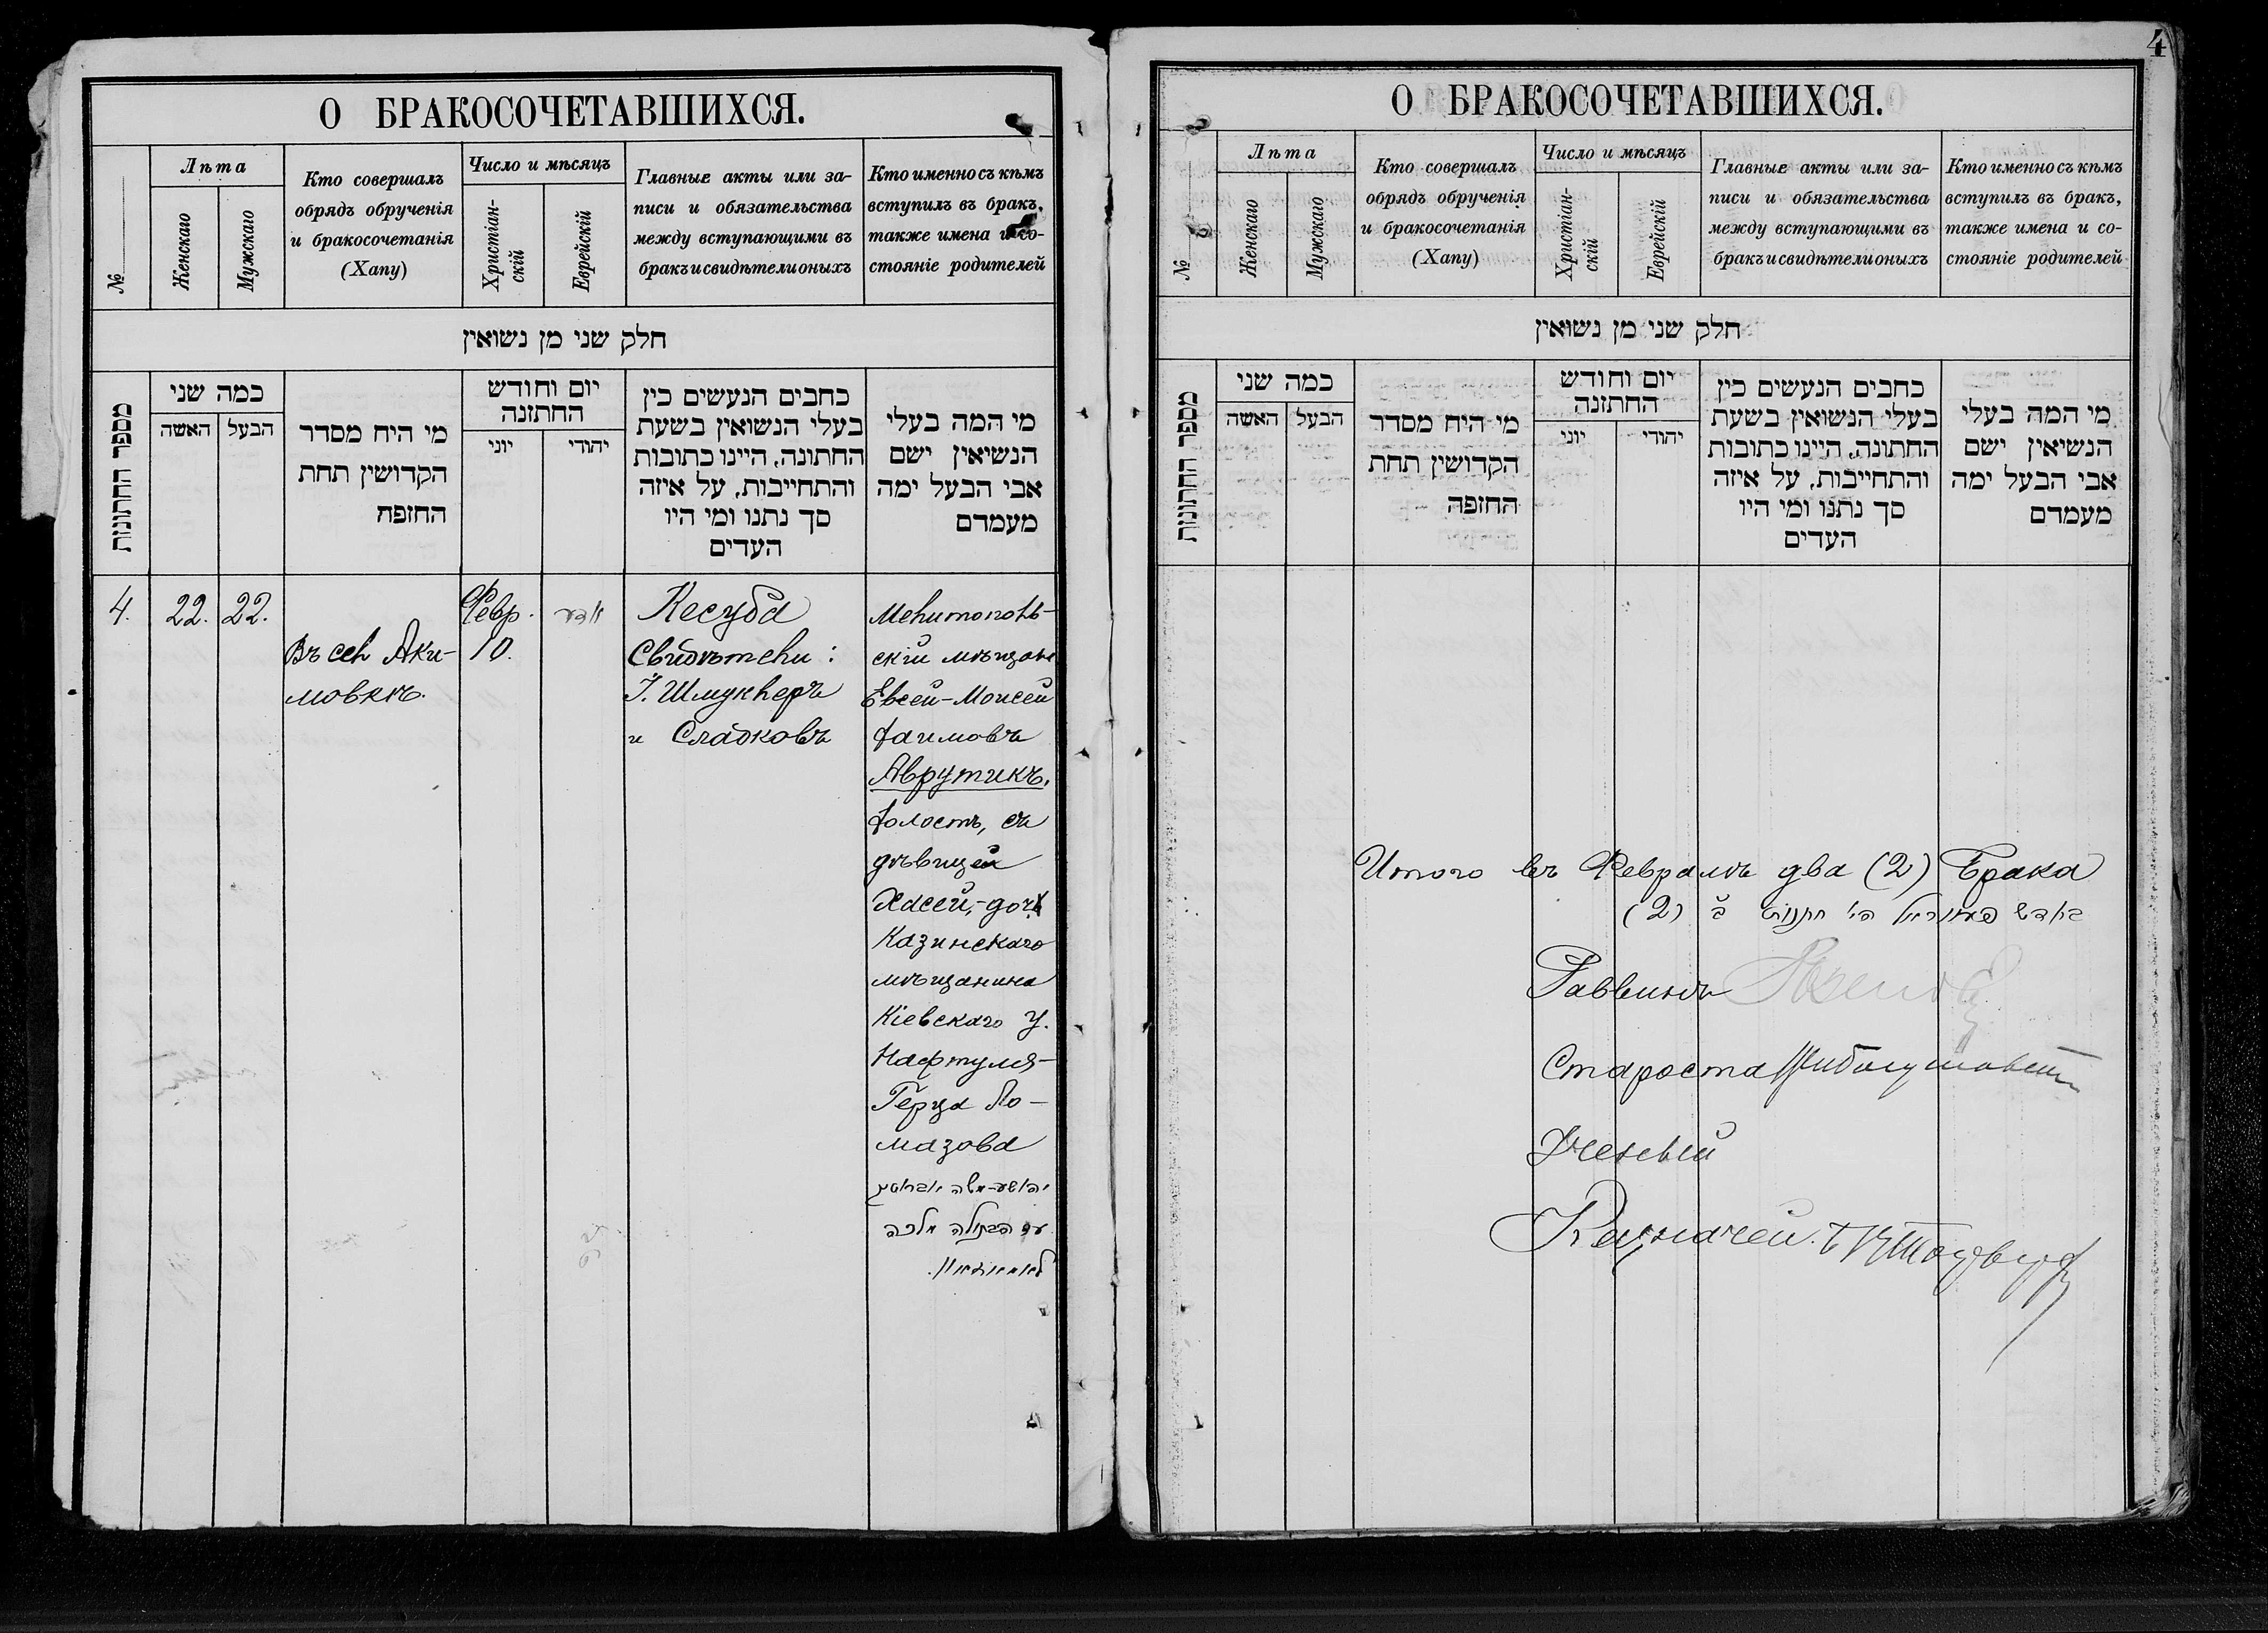 О БРАКОСОЧЕТАВШИХСЯ.
№
Лѣта
Женскаго
Мужскаго
Кто совершалъ
обрядъ обрученія
и бракосочетанія
(Хапу)
Число и мѣсяцъ
Христіан-
скій
Еврейскій
Главные акты или за-
писи и обязательства
между вступающими въ
бракъ и свидѣтели оныхъ
Кто именно съ кѣмъ
вступилъ въ бракъ,
также имена и со-
стояніе родителей
חלק שני מן נשואין
מספר החתונות
כמה שני
האשה
הבעל
מי היח מסדר
הקדושין תחת
החופח
יום וחודש
החתונה
יוני
יהודי
כחבים הנעשים כין
בעלי הנשואין בשעת
החתונה, היינו כתובות
והתחייבות, על איזה
סך נתנו ומי היו
העדים
מי המה בעלי
הנשיאין ישם
אבי הבעל ימה
מעמדם
4.
22.
22.
Въ сел Аки-
мовкѣ.
Февр.
10.
אדר
Кесуба
Свидѣтели:
І. Шмуклеръ
и Сладковъ
Мелитополь-
скій мѣщан
Евсей-Моисей
Хаимовъ
Аврутикъ,
холостъ, съ
дѣвицей
Хасей,-дочь
Казинскаго
мѣщанина
Кіевскаго у.
Нафтуля-
Герца Ло-
мазова
עם הבתולה
О БРАКОСОЧЕТАВШИХСЯ.
4
№
Лѣта
Женскаго
Мужскаго
Кто совершалъ
обрядъ обрученія
и бракосочетанія
(Хапу)
Число и мѣсяцъ
Христіан-
скій
Еврейскій
Главные акты или за-
писи и обязательства
между вступающими въ
бракъ и свидѣтели оныхъ
Кто именно съ кѣмъ
вступилъ въ бракъ,
также имена и со-
стояніе родителей
חלק שני מן נשואין
מספר החתונות
כמה שני
האשה
הבעל
מי היח מסדר
הקדושין תחת
החופה
יום וחודש
החתונה
יוני
יהודי
כחבים הנעשים כין
בעלי הנשואין בשעת
החתונה, היינו כתובות
והתחייבות, על איזה
סך נתנו ומי היו
העדים
מי המה בעלי
הנשיאין ישם
אבי הבעל ימה
מעמדם
Итого въ Февралѣ два (2) Брака
(2)
Раввинъ
Староста
Ученый
Казначей